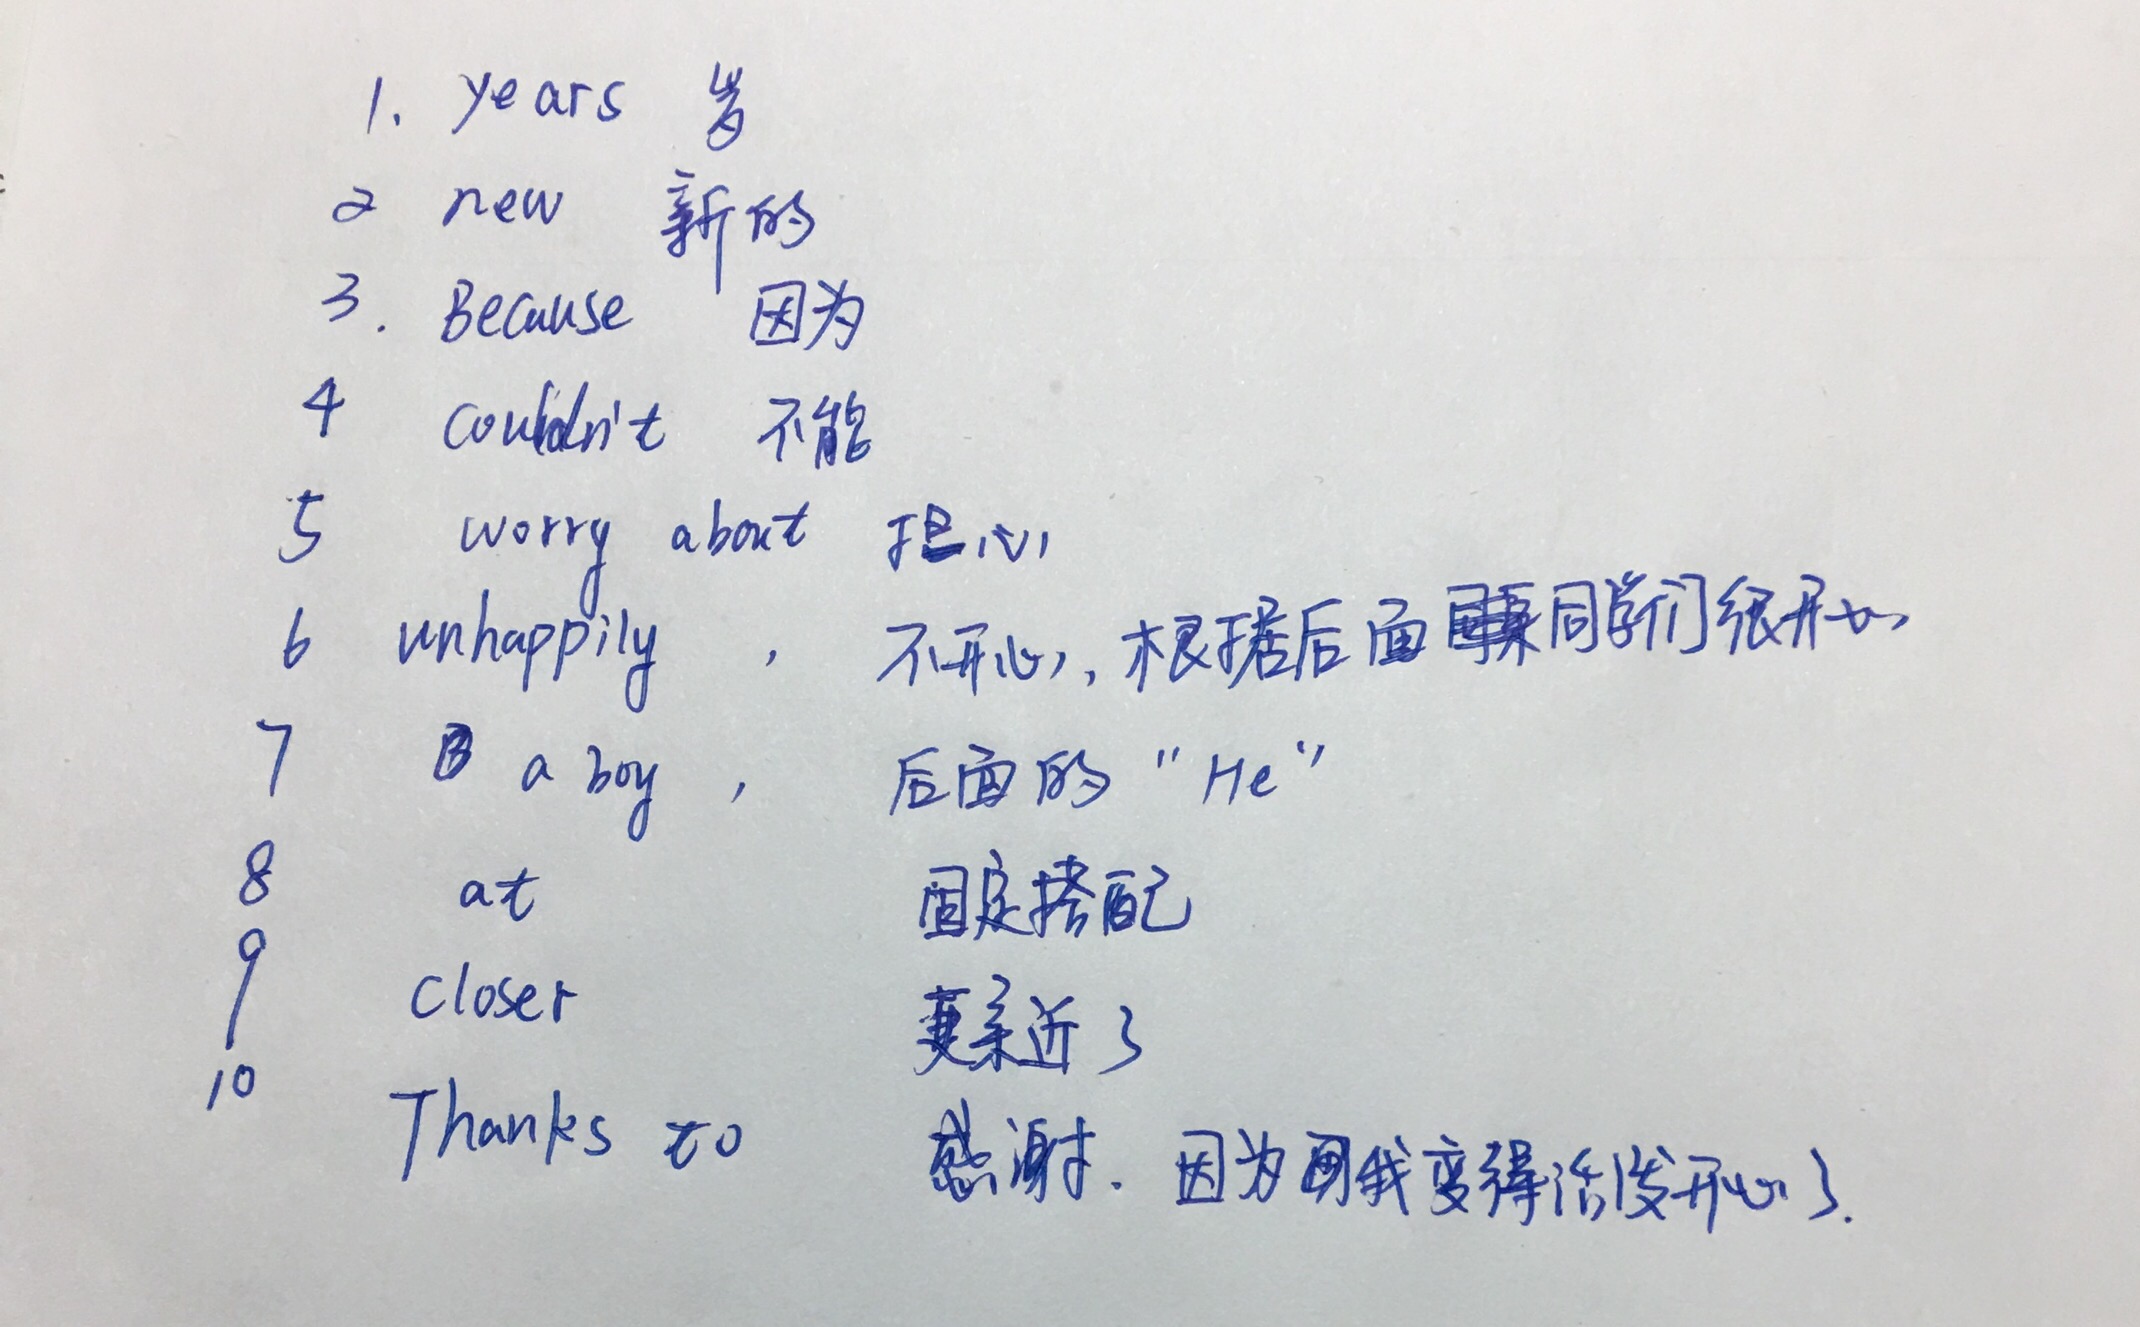 1. years 岁
2 new 新的
3. Because 因为
4 couldn't 不能
5 worry about 担心
6 unhappily , 不开心, 根据后面同学们很开心
7 B a boy , 后面的 "He"
8 at 固定搭配
9 closer 更亲近了
10 Thanks to 感谢. 因为我变得活泼开心了.